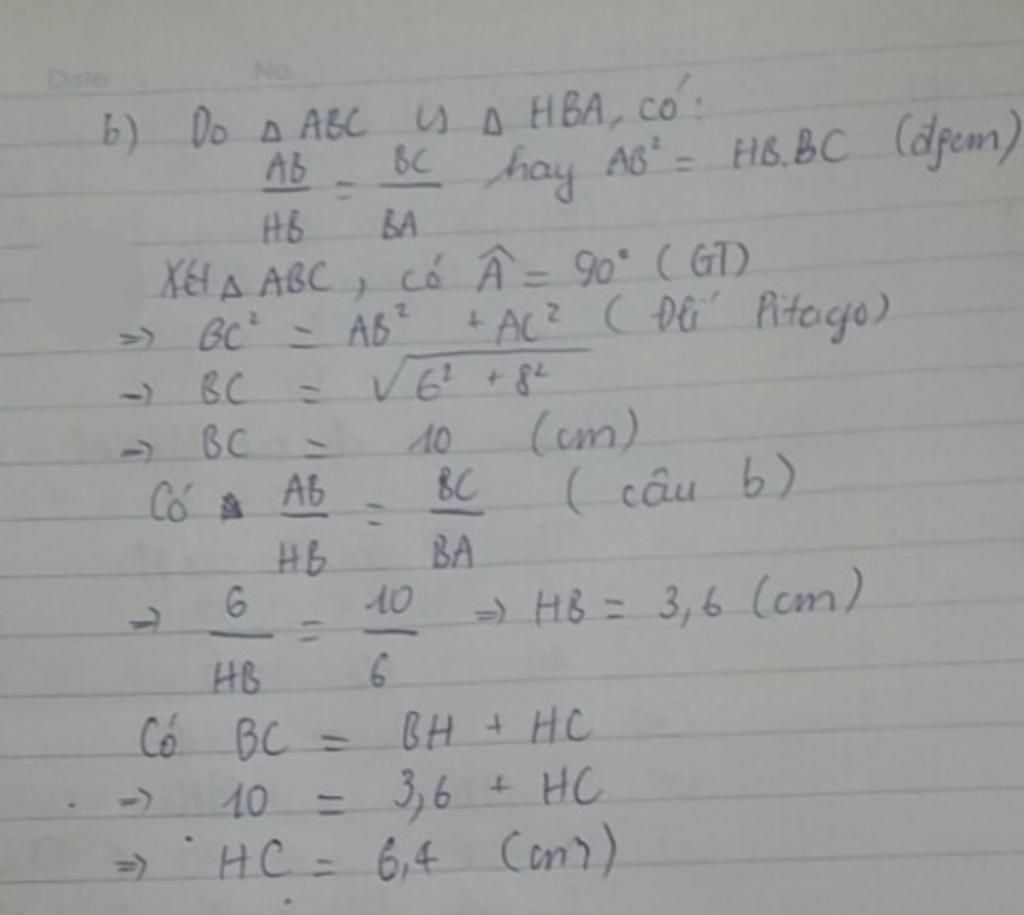 Date No
b) Do △ ABC ∽ △ HBA, có:
AB/HB = BC/BA hay AB² = HB.BC (đpcm)
Xét △ ABC, có Â = 90° (GT)
=> BC² = AB² + AC² ( Pitago)
=> BC = √(6² + 8²)
=> BC = 10 (cm)
Có AB/HB = BC/BA ( câu b)
=> 6/HB = 10/6 => HB = 3,6 (cm)
Có BC = BH + HC
=> 10 = 3,6 + HC
=> HC = 6,4 (cm)